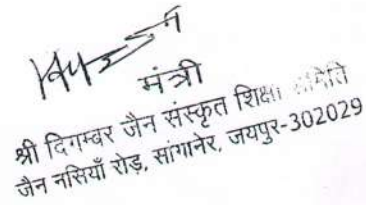 मंत्री
श्री दिगम्बर जैन संस्कृत शिक्षा समिति
जैन नसियाँ रोड़, सांगानेर, जयपुर-302029